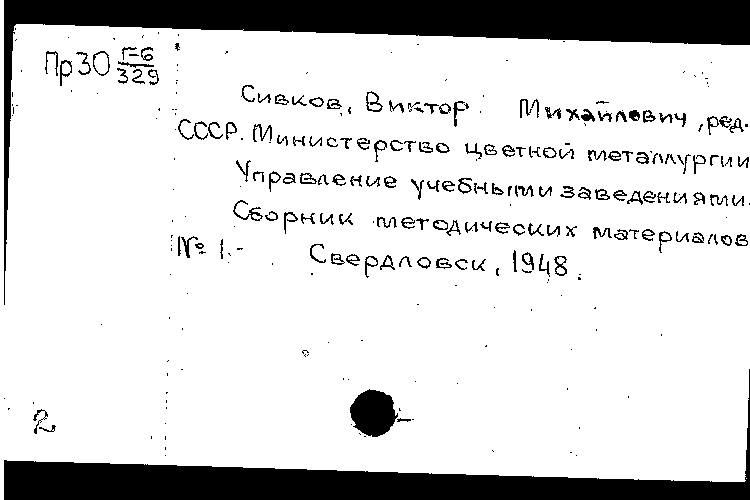 Пр30 Г-6/329
Сивков, Виктор Михайлович, ред.
СССР. Министерство цветной металлургии
Управление учебными заведениями.
Сборник методических материалов
№ 1.- Свердловск, 1948.
2